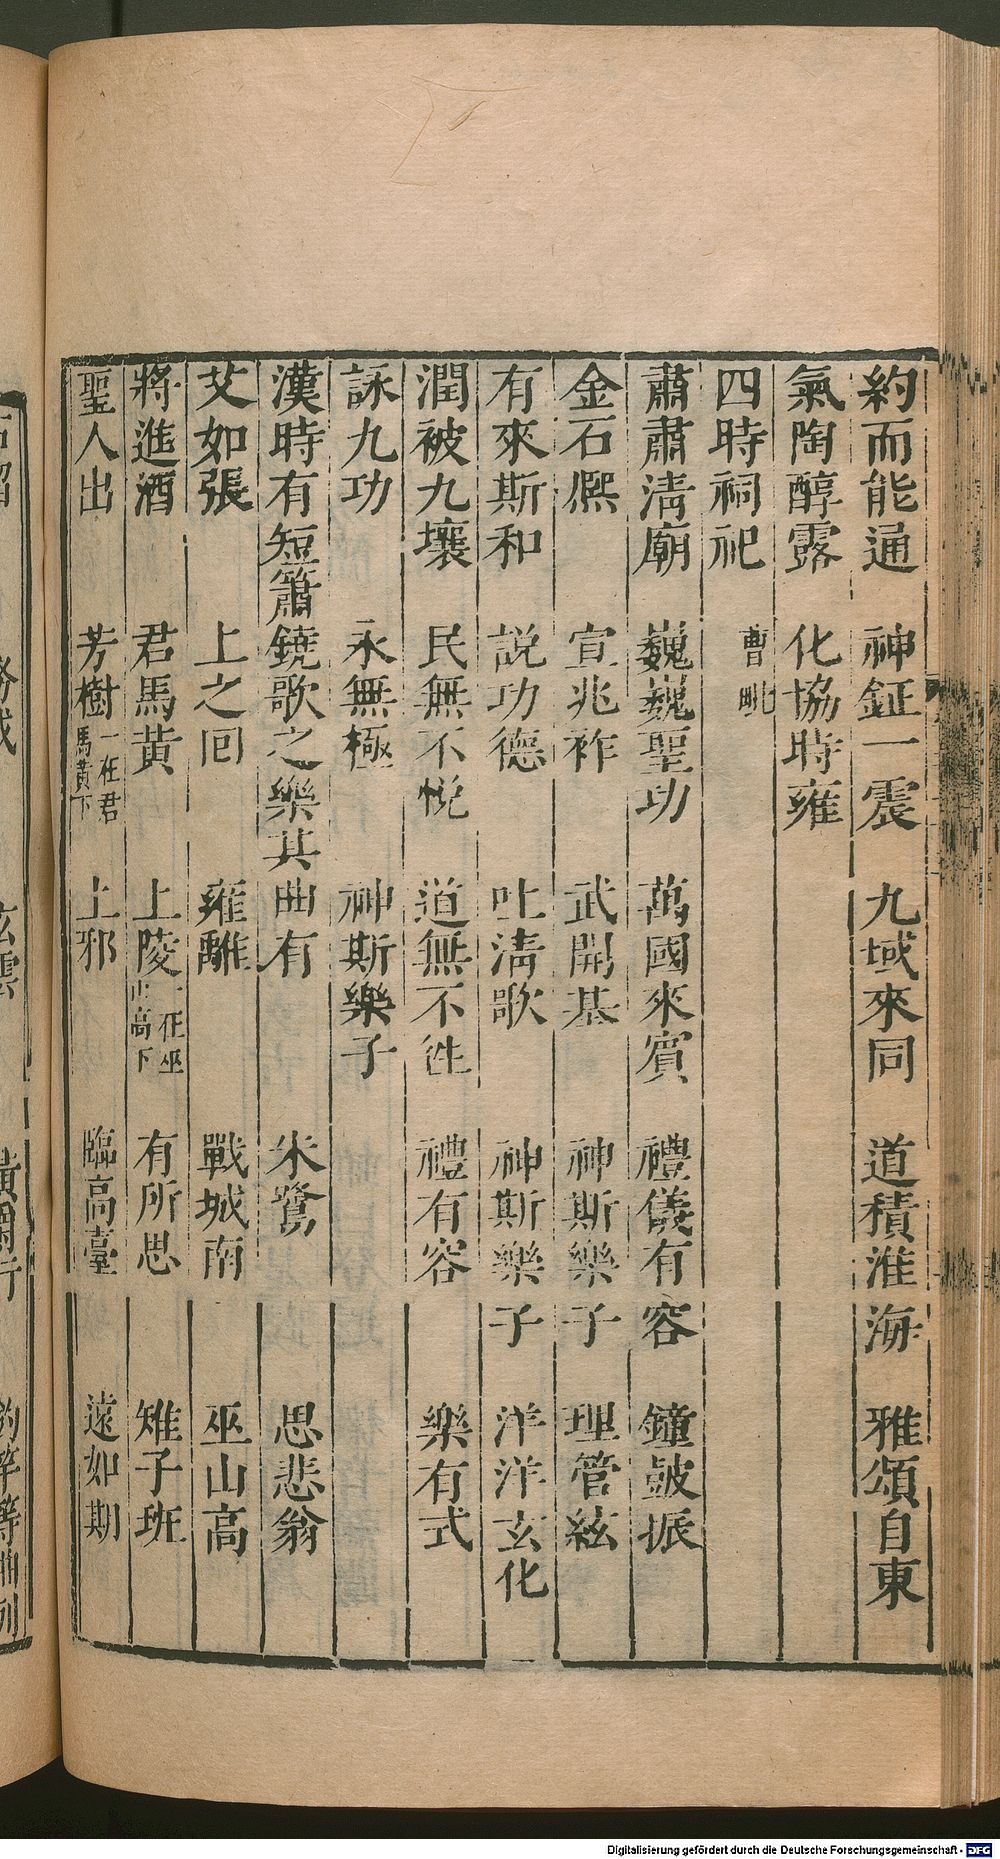 約而能通　神鉦一震　九域來同　道積淮海　雅頌自東
氣陶醇露　化協時雍
四時祠祀　曹毗
肅肅淸廟　巍巍聖功　萬國來賓　禮儀有容　鐘鼓振
金石熈　宣兆祚　武開基　神斯樂子　理管絃
有來斯和　説功德　吐淸歌　神斯樂子　洋洋玄化
潤被九壤　民無不悅　道無不徃　禮有容　樂有式
詠九功　永無極　神斯樂子
漢時有短簫鐃歌之樂其曲有　朱鷺　思悲翁
艾如張　上之囘　雍離　戰城南　巫山高
將進酒　君馬黃　上陵一在巫山高下　有所思　雉子班
聖人出　芳樹一在君馬黃下　上邪　臨高臺　遠如期
石留　務成　玄雲　黃爵行　釣竿等曲列
Digitalisierung gefördert durch die Deutsche Forschungsgemeinschaft - DFG